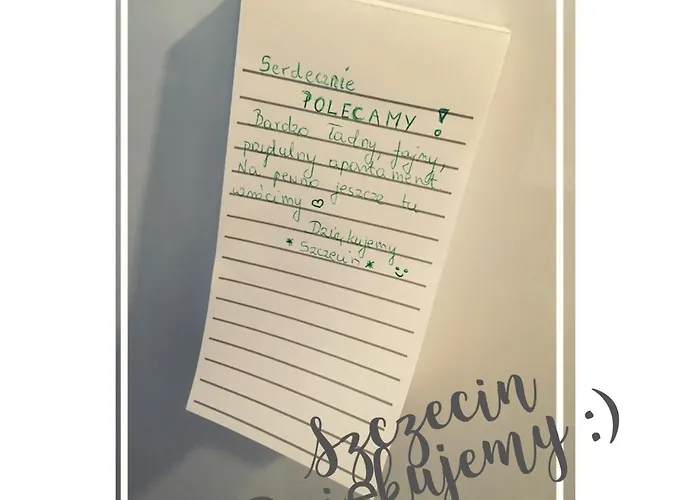 Serdecznie
POLECAMY!
Bardzo ładny, fajny,
przytulny apartament
Na pewno jeszcze tu
wrócimy ♡
Dziękujemy
* Szczecin * :)
Szczecin
Dziękujemy :)